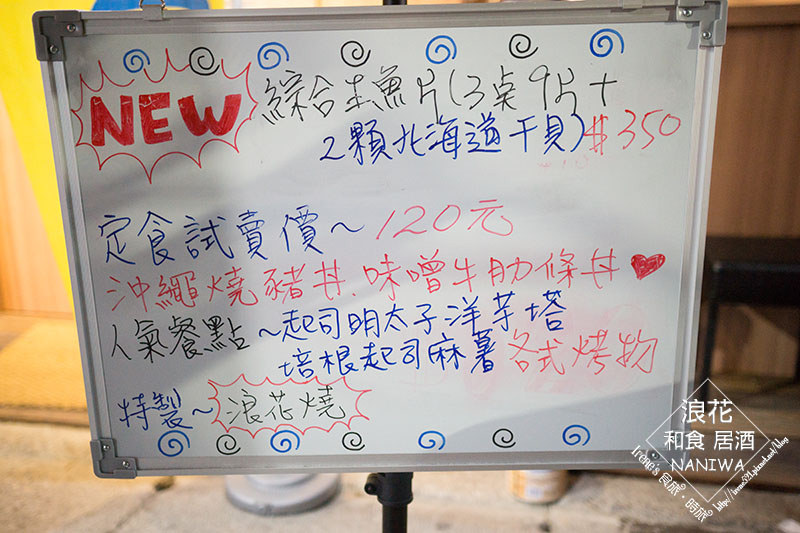 NEW 綜合生魚片(3桌9片+
2顆北海道干貝)$350
定食試賣價~120元
沖繩燒豬丼.味噌牛肋條丼
人氣餐點~起司明太子洋芋塔
培根起司麻薯 各式烤物
特製~浪花燒
浪花
和食 居酒
NANIWA
Irene's 食旅.時旅